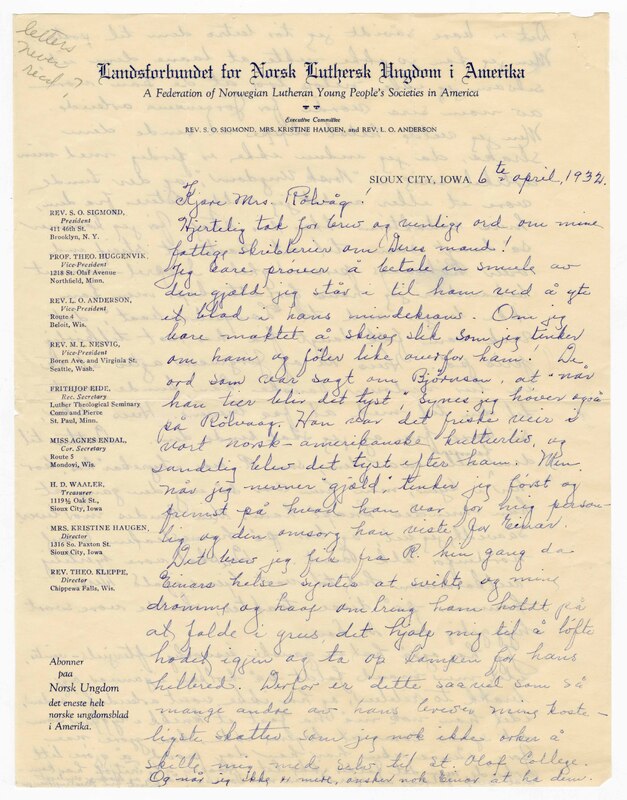 letters
never
read?
Landsforbundet for Norsk Luthersk Ungdom i Amerika
A Federation of Norwegian Lutheran Young People's Societies in America
Executive Committee
REV. S. O. SIGMOND, MRS. KRISTINE HAUGEN, and REV. L. O. ANDERSON
SIOUX CITY, IOWA, 6te april, 1932.
REV. S. O. SIGMOND,
President
411 46th St.
Brooklyn, N. Y.
PROF. THEO. HUGGENVIK,
Vice-President
1218 St. Olaf Avenue
Northfield, Minn.
REV. L. O. ANDERSON,
Vice-President
Route 4
Beloit, Wis.
REV. M. L. NESVIG,
Vice-President
Boren Ave. and Virginia St.
Seattle, Wash.
FRITHJOF EIDE,
Rec. Secretary
Luther Theological Seminary
Como and Pierce
St. Paul, Minn.
MISS AGNES ENDAL,
Cor. Secretary
Route 5
Mondovi, Wis.
H. D. WAALER,
Treasurer
1119½ Oak St.,
Sioux City, Iowa
MRS. KRISTINE HAUGEN,
Director
1316 So. Paxton St.
Sioux City, Iowa
REV. THEO. KLEPPE,
Director
Chippewa Falls, Wis.
Abonner
paa
Norsk Ungdom
det eneste helt
norske ungdomsblad
i Amerika.
Kjære Mrs. Rölvåg!
Hjertelig tak for brev og venlige ord om mine
fattige skriblerier om Deres mand!
Jeg bare prøver å betale en smule av
den gjæld jeg står i til ham ved å yte
et blad i hans mindekrans. Om jeg
bare maktet å skrive slik som jeg tænker
om ham og föler like overfor ham. De
ord som var sagt om Björnson, at "når
han tier blir det tyst," synes jeg höver også
på Rölvaag. Han var det friske veir i
vort norsk-amerikanske kulturliv, og
sandelig blev det tyst efter ham. Men
når jeg nevner "gjæld," tenker jeg först og
fremst på hvad han var for mig person-
lig og den omsorg han viste for Einar.
Det brev jeg fik fra R. hin gang da
Einars helse syntes at svikte og mine
drömme og haap omkring ham holdt på
at falde i grus det hjalp mig til å löfte
hodet igjen og ta op kampen for hans
helbred. Derfor er dette saavel som så
mange andre av hans brever mine koste-
ligste skatter som jeg nok ikke orker å
skille mig med, selv til St. Olaf College.
Og når jeg ikke er mere, önsker nok Einar at ha dem.